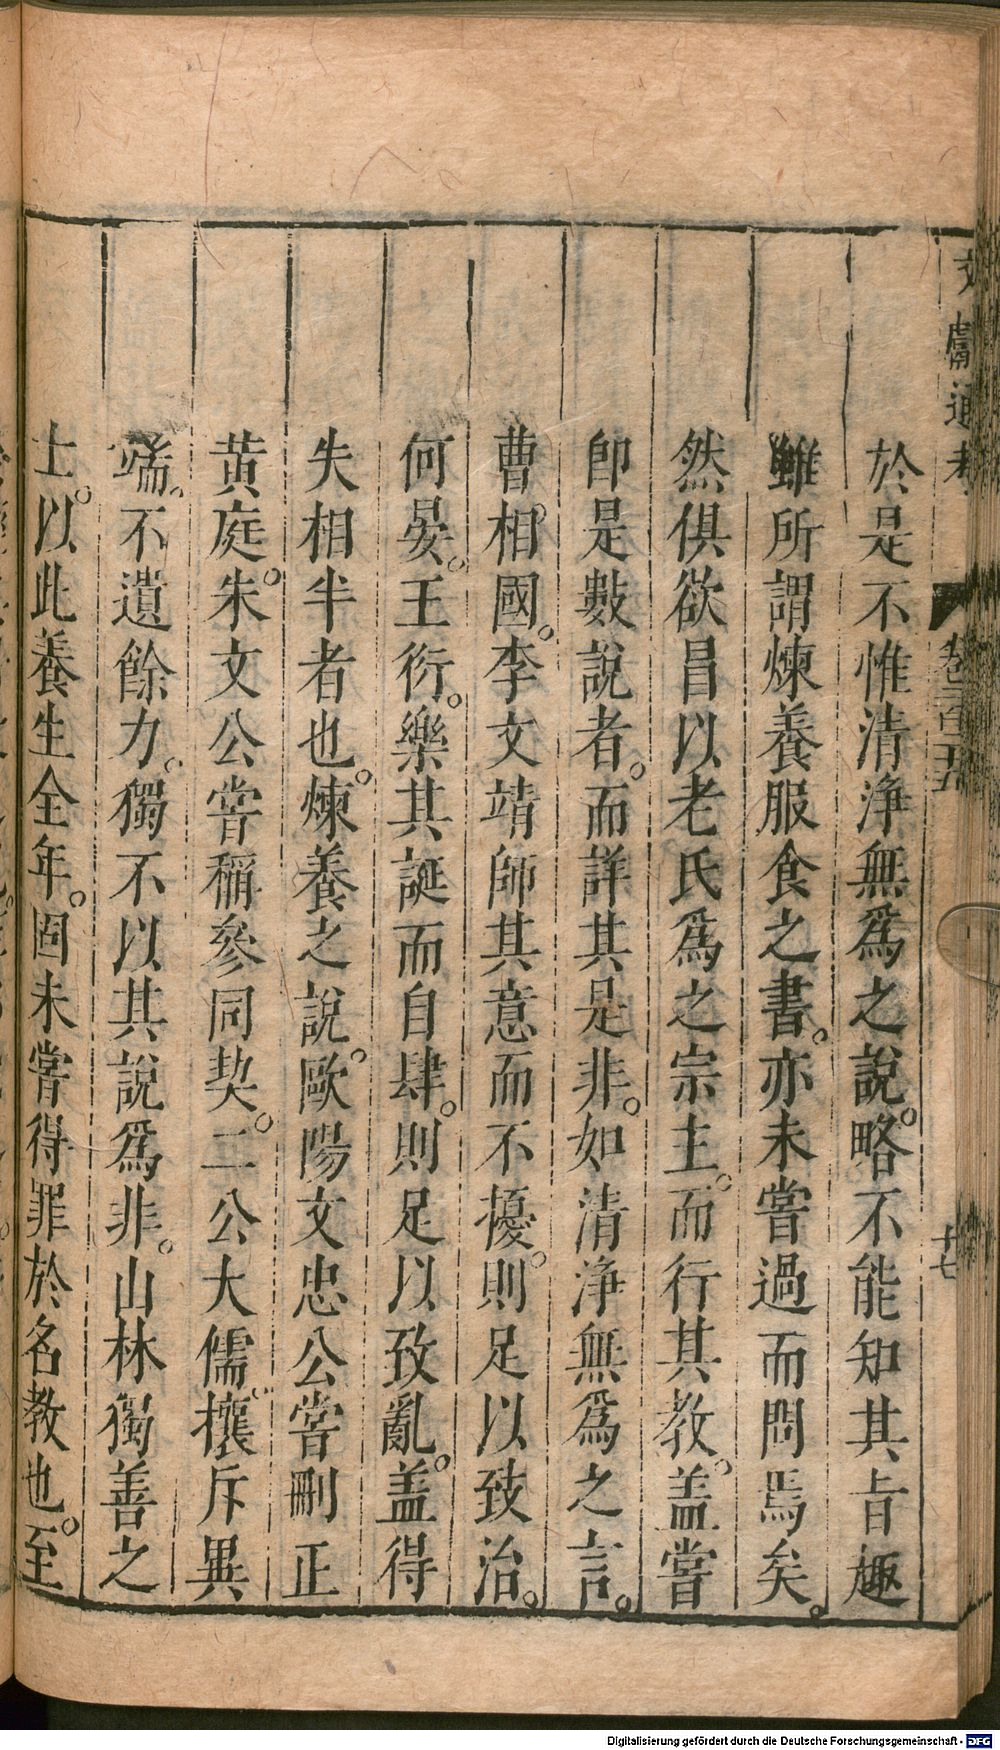 文獻通考 卷二百二十五 十七
於是不惟清淨無爲之說。略不能知其旨趣
雖所謂煉養服食之書。亦未嘗過而問焉矣。
然俱欲昌以老氏爲之宗主。而行其教。盖嘗
卽是數說者。而詳其是非。如清淨無爲之言。
曹相國。李文靖師其意而不擾。則足以致治。
何晏。王衍。樂其誕而自肆。則足以致亂。盖得
失相半者也。煉養之說。歐陽文忠公嘗刪正
黄庭。朱文公嘗稱參同契。二公大儒。攘斥異
端。不遺餘力。獨不以其說爲非。山林獨善之
士。以此養生全年。固未嘗得罪於名教也。至
Digitalisierung gefördert durch die Deutsche Forschungsgemeinschaft - DFG